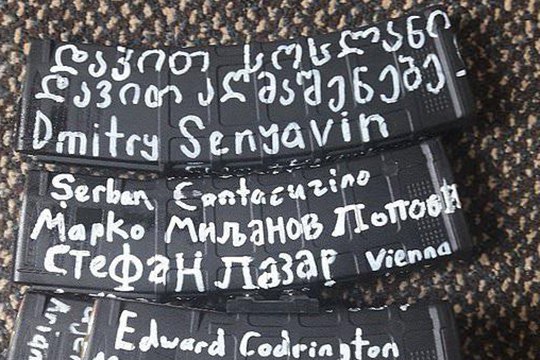 დავით სოსლანი
დავით აღმაშენებე
Dmitry Senyavin
Şerban Cantacuzino
Марко Миљанов Попови
Стефан Лазар Vienna
Edward Codrington